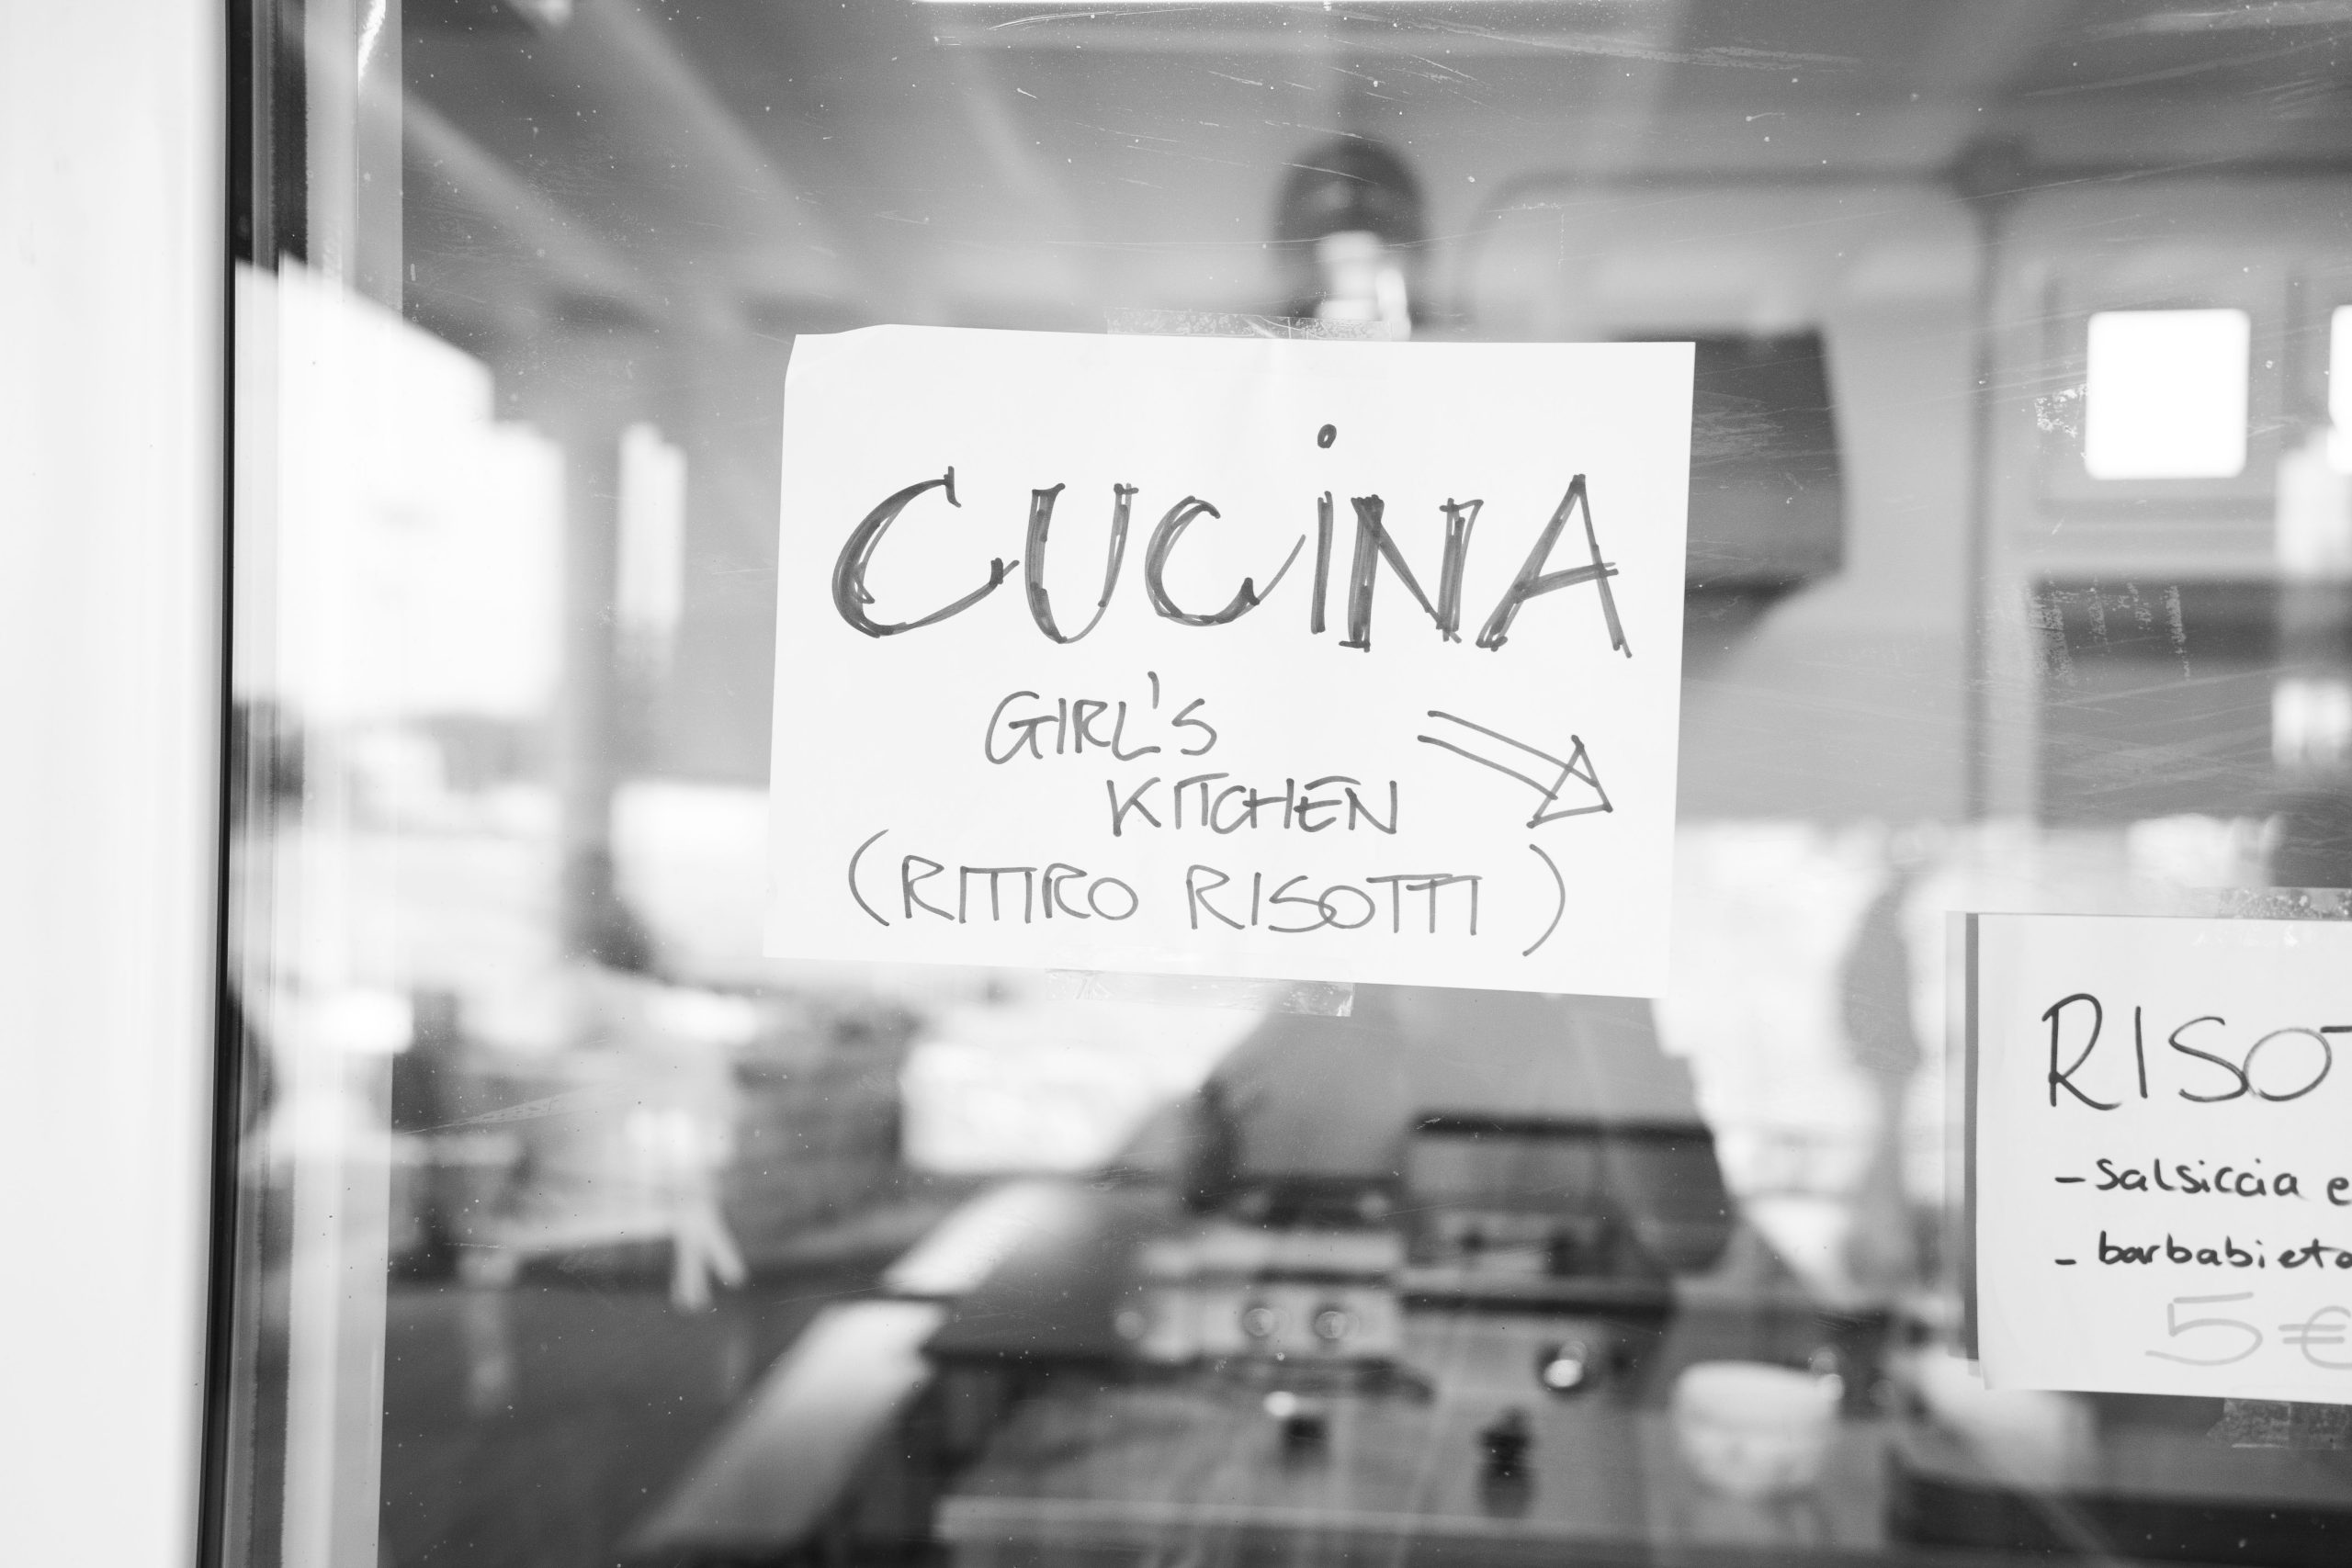 CUCiNA
GIRL'S
KITCHEN
(RITIRO RISOTTI)
RISO
- salsiccia e
- barbabieto
5€